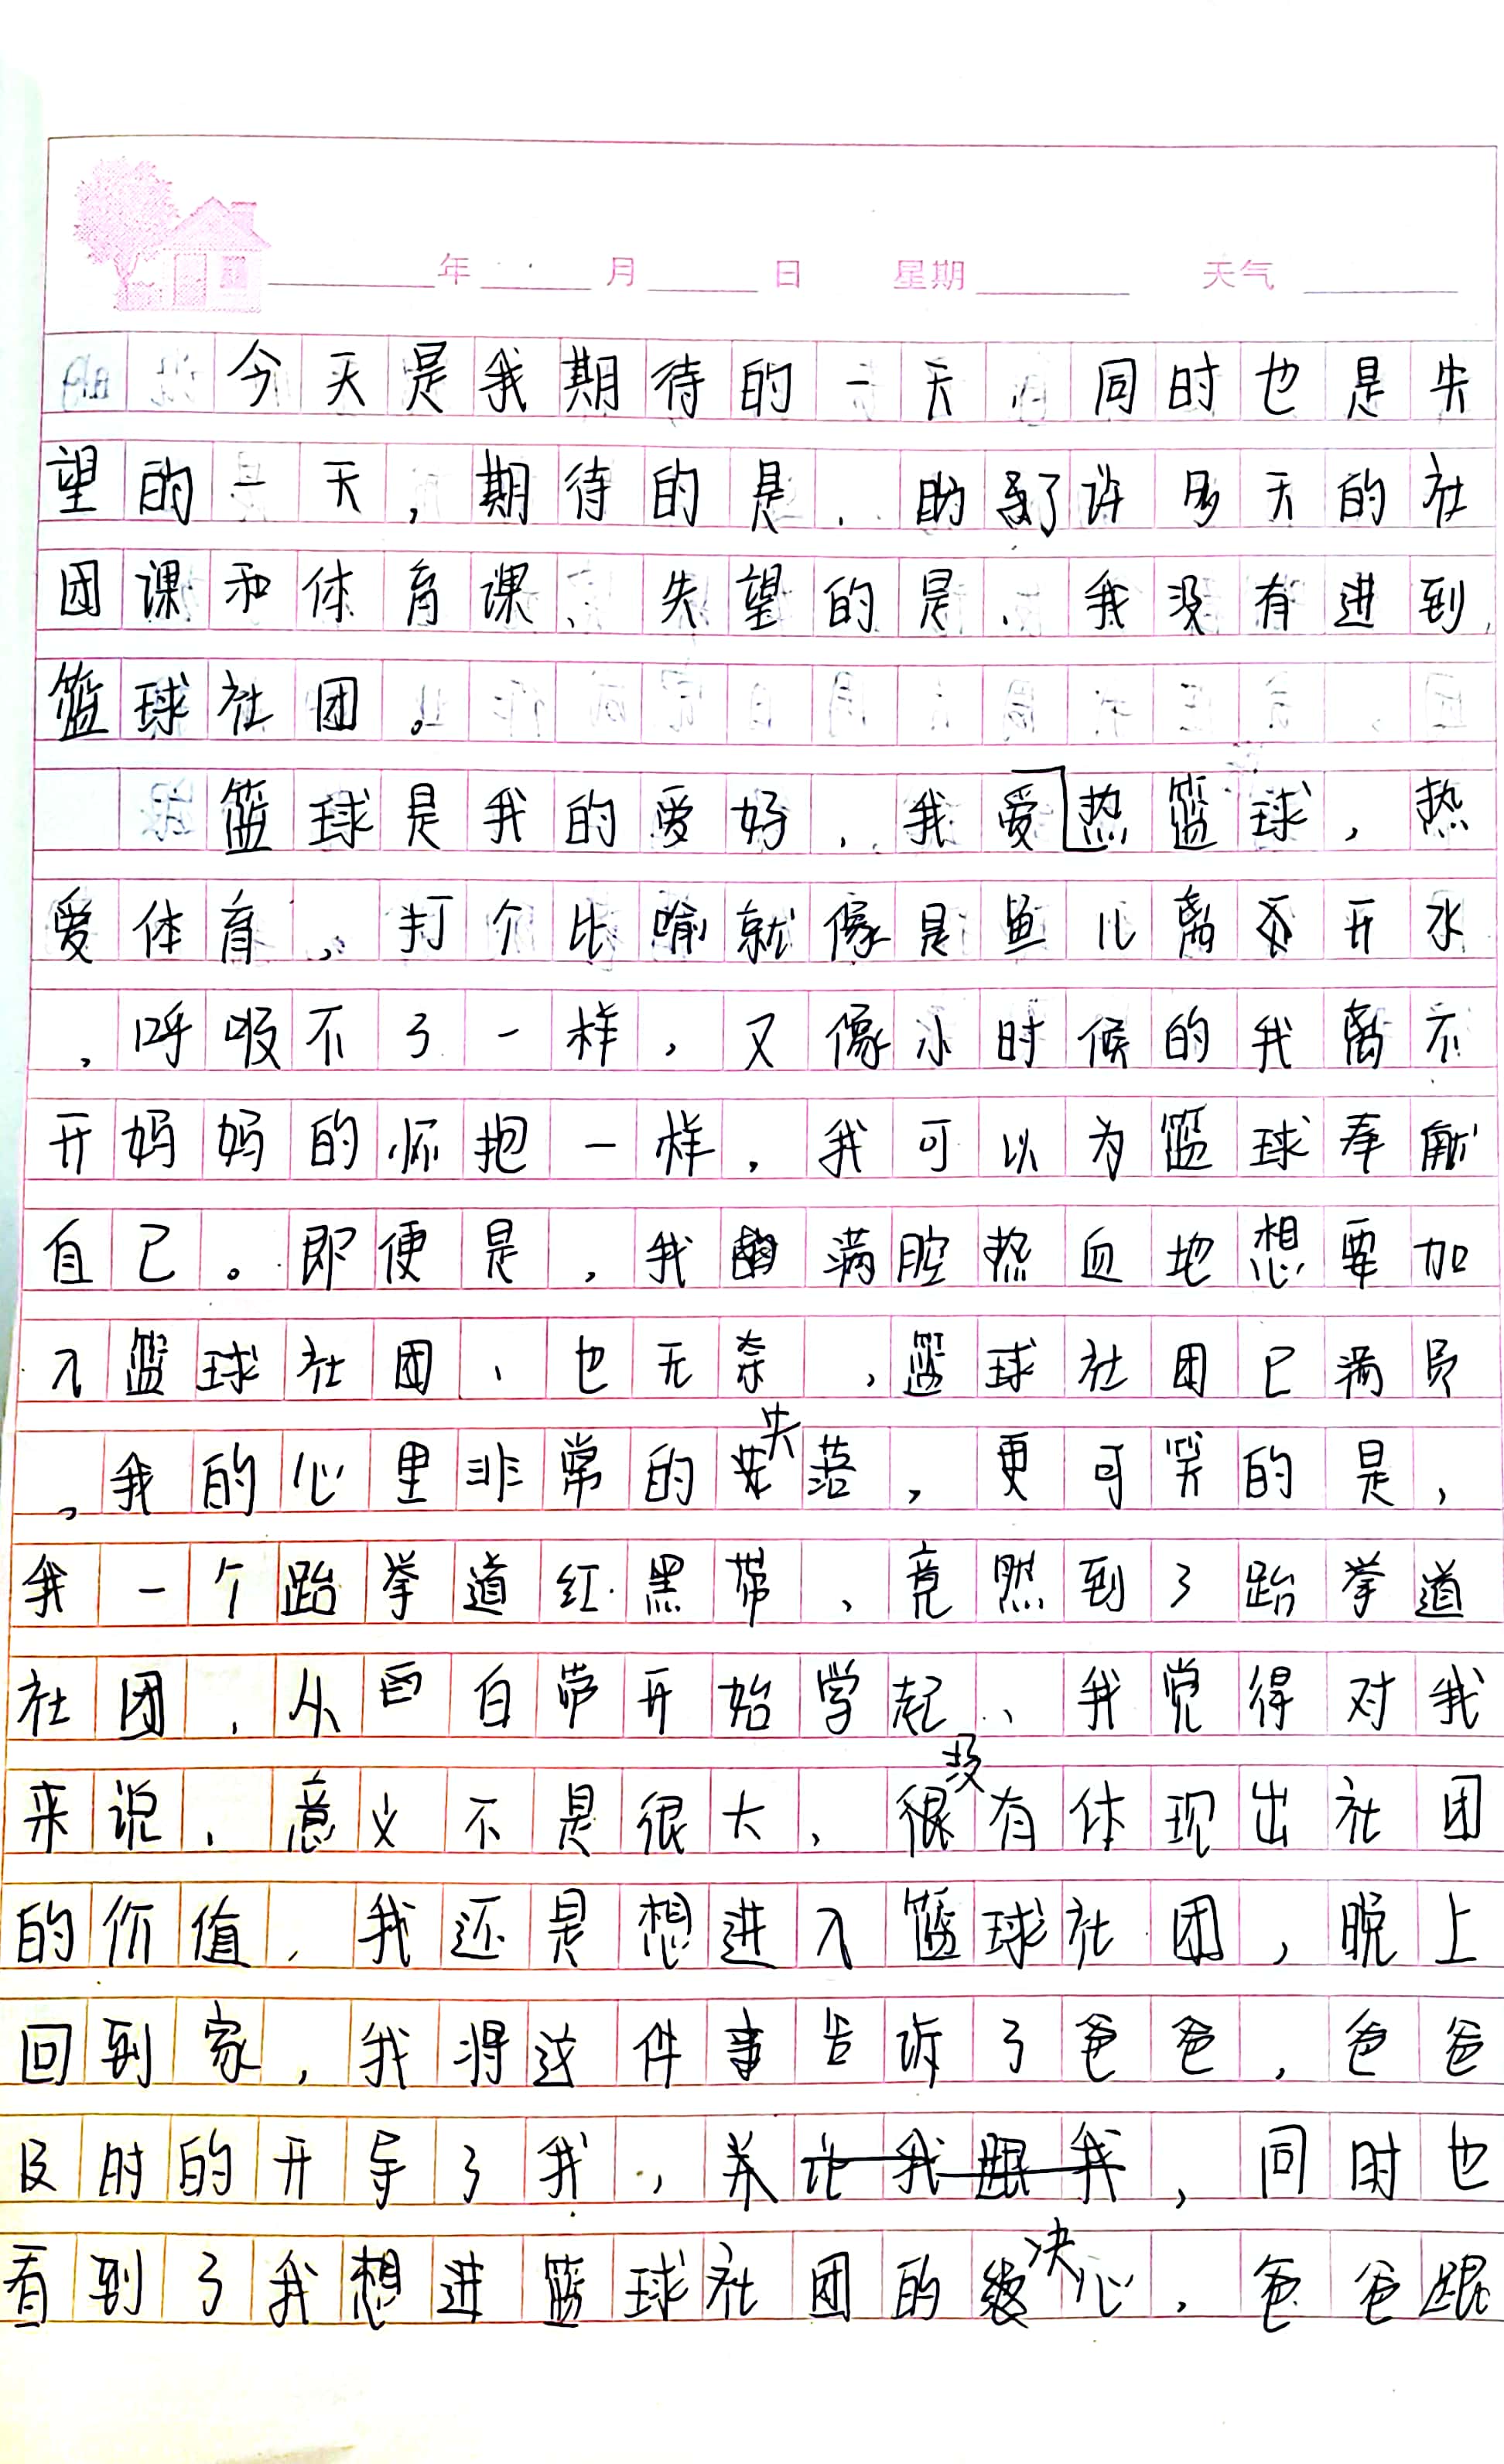 年 月 日 星期 天气
今天是我期待的一天，同时也是失
望的一天，期待的是，盼了许多天的社
团课和体育课、失望的是、我没有进到
篮球社团。
篮球是我的爱好，我爱热篮球，热
爱体育，打个比喻就像是鱼儿离不开水
，呼吸不了一样，又像小时候的我离不
开妈妈的怀抱一样，我可以为篮球奉献
自己。即便是，我满腔热血地想要加
入篮球社团、也无奈，篮球社团已满员
。我的心里非常的失落，更可笑的是，
我一个跆拳道红黑带、竟然到了跆拳道
社团，从白带开始学起、我觉得对我
来说，意义不是很大，没有体现出社团
的价值，我还是想进入篮球社团，晚上
回到家，我将这件事告诉了爸爸，爸爸
及时的开导了我，并让我跟我，同时也
看到了我想进篮球社团的决心，爸爸跟